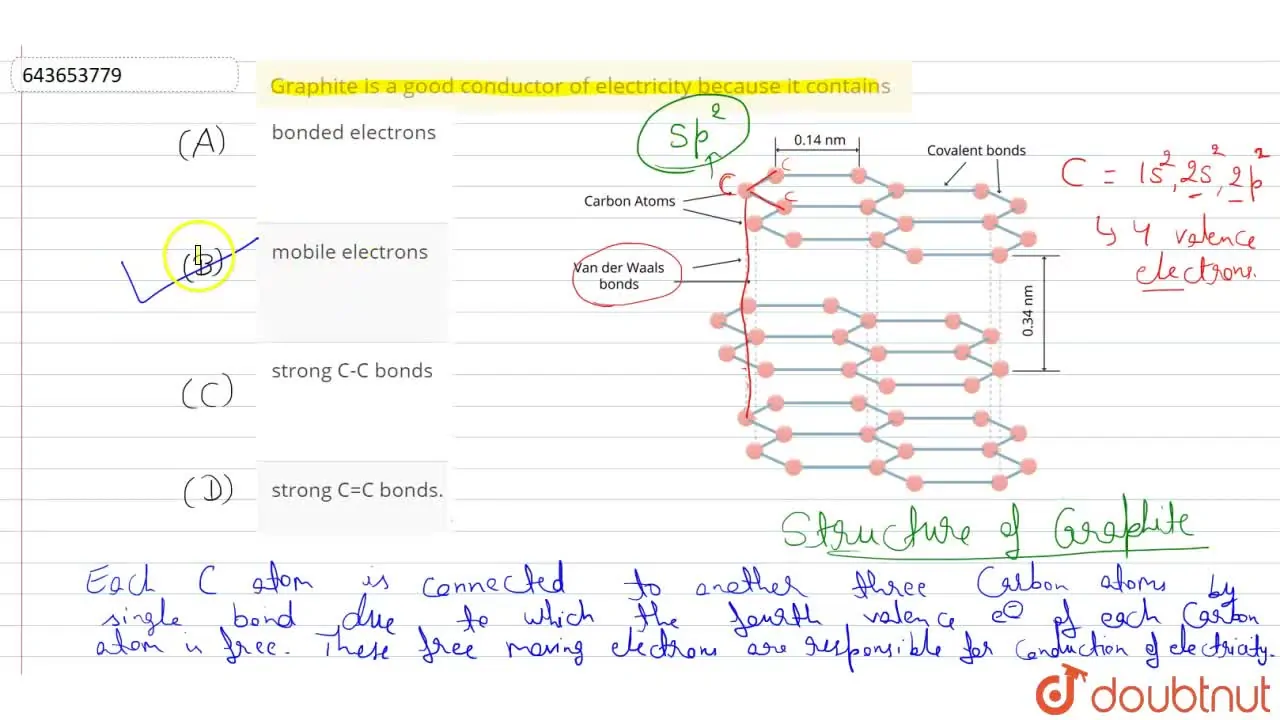 643653779
Graphite is a good conductor of electricity because it contains
(A) bonded electrons
(B) mobile electrons
(C) strong C-C bonds
(D) strong C=C bonds.
Sp²
0.14 nm
Covalent bonds
C
C
C
Carbon Atoms
Van der Waals
bonds
0.34 nm
C = 1s², 2s², 2p²
↳ 4 valence
electrons.
Structure of Graphite
Each C atom is connected to another three Carbon atoms by
single bond due to which the fourth valence e⊖ of each Carbon
atom is free. These free moving electrons are responsible for conduction of electricity.
doubtnut